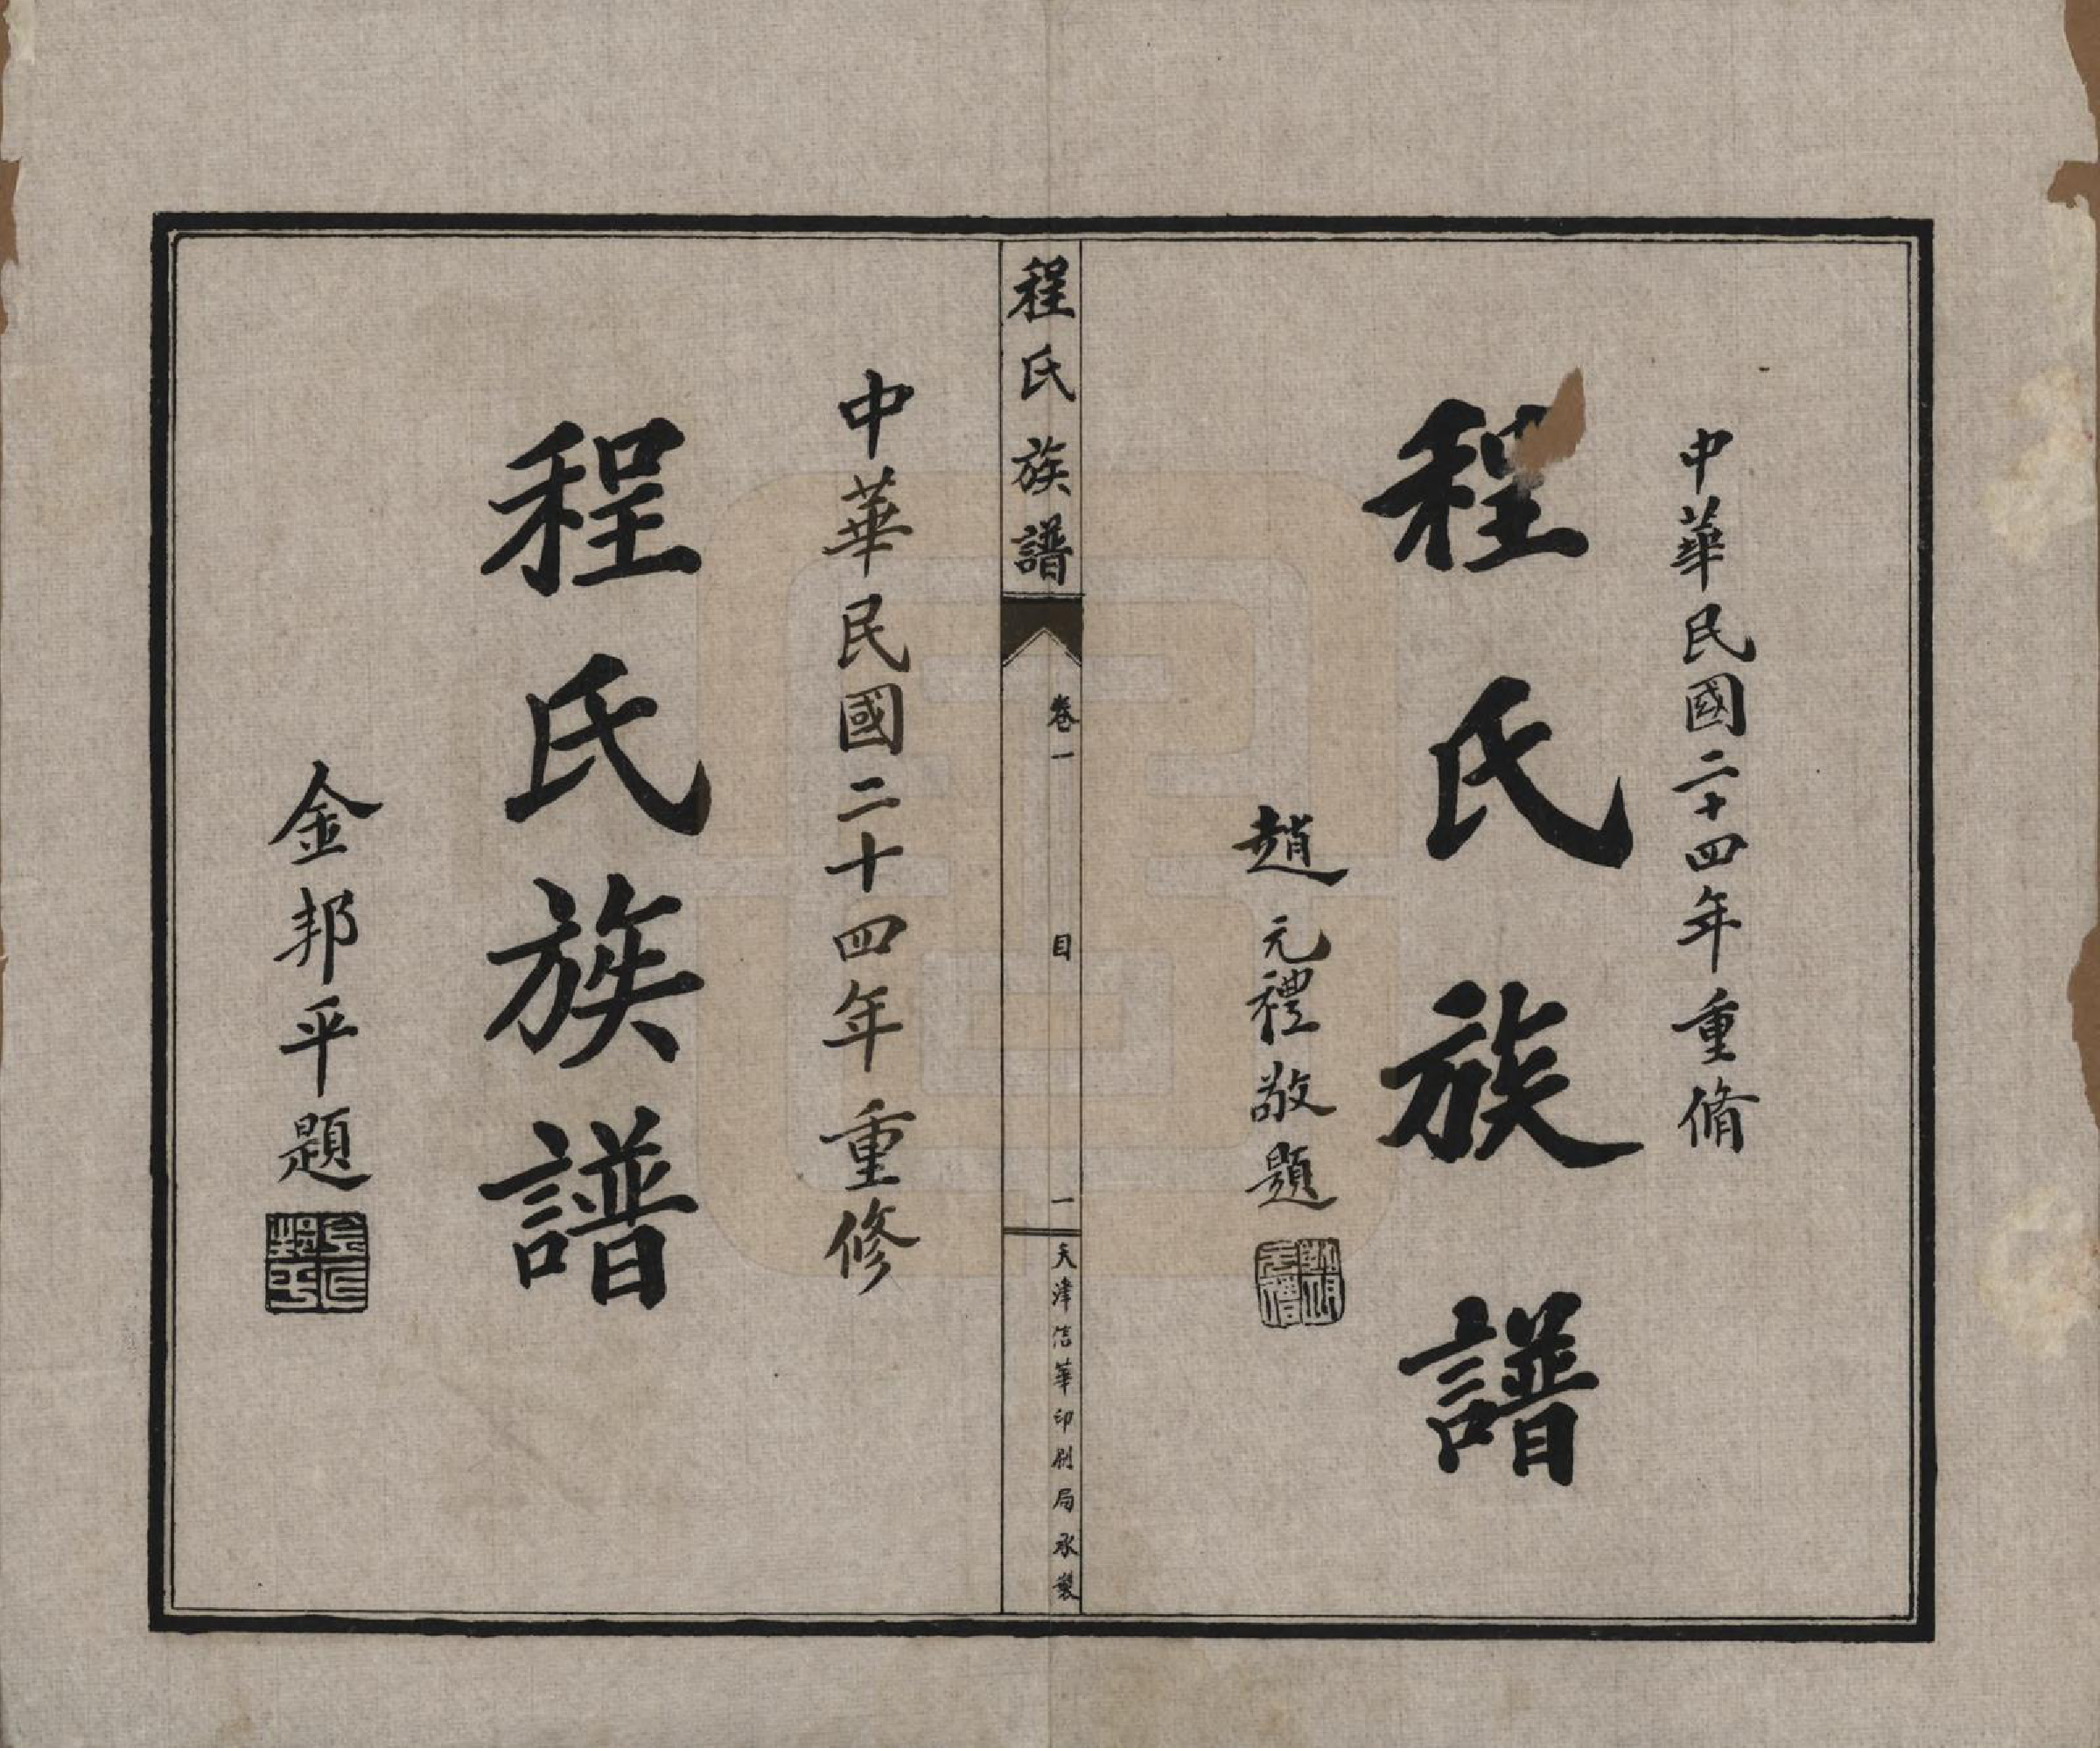 中華民國二十四年重脩
程氏族譜
趙元禮敬題
程氏族譜
卷一
目
一
天津信華印刷局承製
中華民國二十四年重修
程氏族譜
金邦平題